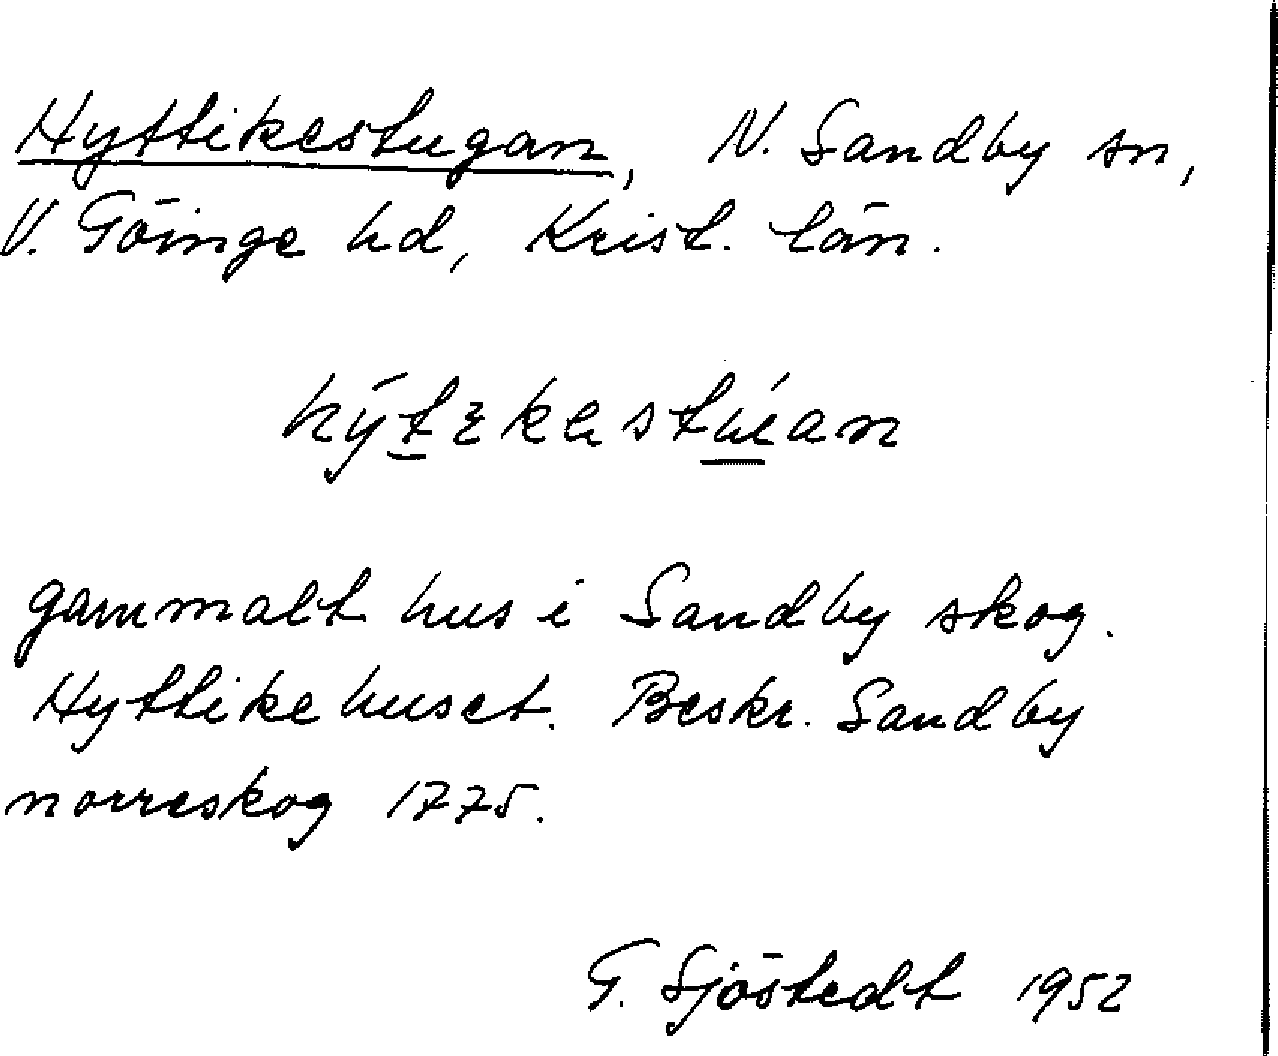 Hyttikestugan, N. Sandby sn,
V. Göinge hd, Krist. län.
gammalt hus i Sandby skog.
Hyttikehuset. Beskr. Sandby
norreskog 1775.
G. Sjöstedt 1952